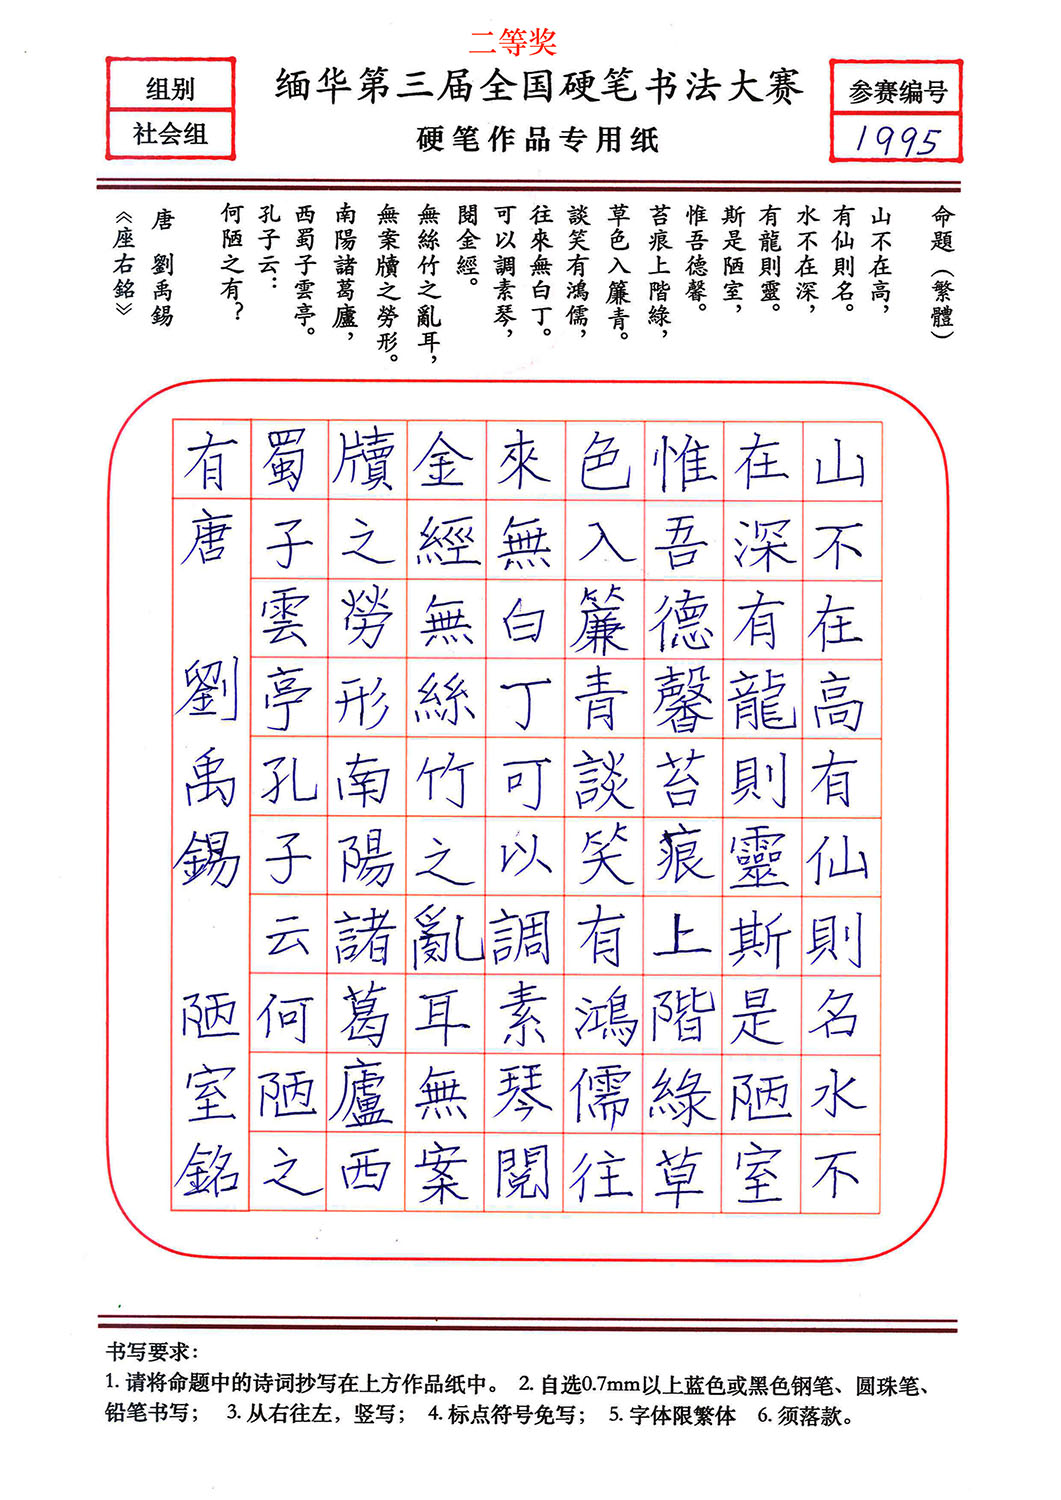 二等奖
缅华第三届全国硬笔书法大赛
硬笔作品专用纸
组别
社会组
参赛编号
1995
命題（繁體）
山不在高，
有仙則名。
水不在深，
有龍則靈。
斯是陋室，
惟吾德馨。
苔痕上階綠，
草色入簾青。
談笑有鴻儒，
往來無白丁。
可以調素琴，
閱金經。
無絲竹之亂耳，
無案牘之勞形。
南陽諸葛廬，
西蜀子雲亭。
孔子云：
何陋之有？
唐 劉禹錫
《座右銘》
山不在高有仙則名水不
在深有龍則靈斯是陋室
惟吾德馨苔痕上階綠草
色入簾青談笑有鴻儒往
來無白丁可以調素琴閱
金經無絲竹之亂耳無案
牘之勞形南陽諸葛廬西
蜀子雲亭孔子云何陋之
有唐 劉禹錫 陋室銘
书写要求：
1. 请将命题中的诗词抄写在上方作品纸中。 2. 自选0.7mm以上蓝色或黑色钢笔、圆珠笔、
铅笔书写； 3. 从右往左，竖写； 4. 标点符号免写； 5. 字体限繁体 6. 须落款。